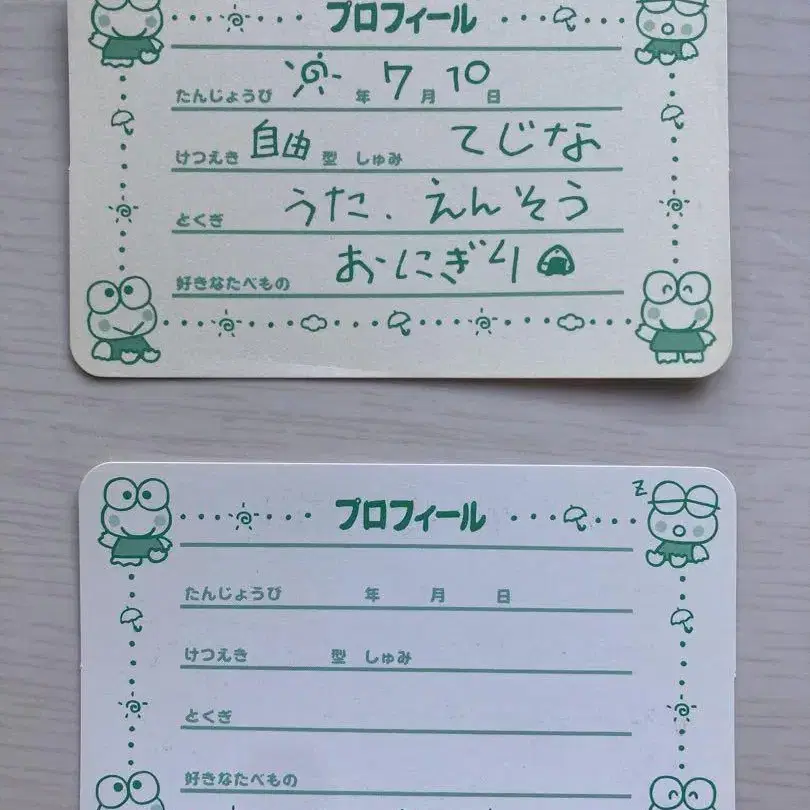 プロフィール
たんじょうび 年 7 月 10 日
けつえき 自由 型 しゅみ てじな
とくぎ うた、えんそう
好きなたべもの おにぎり
プロフィール
たんじょうび 年 月 日
けつえき 型 しゅみ
とくぎ
好きなたべもの